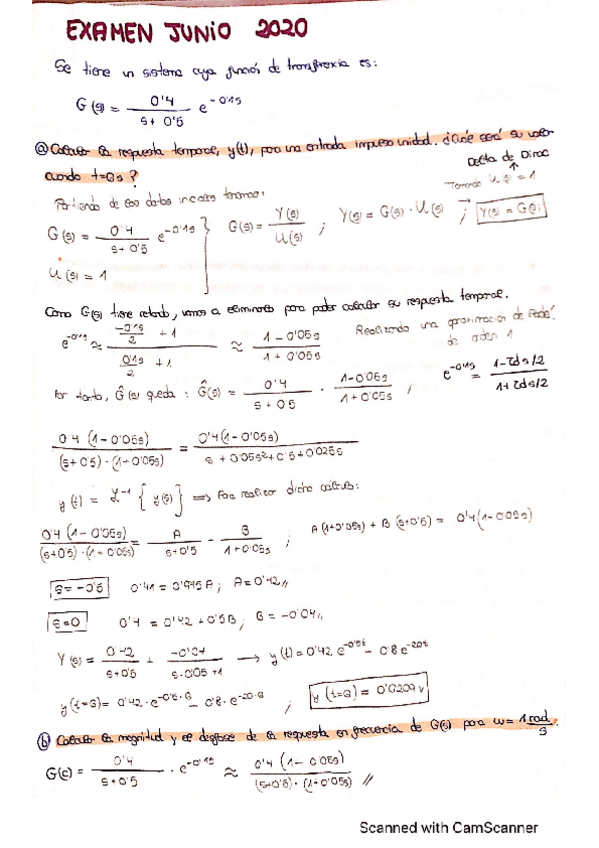 EXAMEN JUNIO 2020
Se tiene un sistema cuya función de transferencia es:
G(s) = 0'4 / (s + 0'5) e^(-0'1s)
a) Calcular la respuesta temporal, y(t), para una entrada impulso unidad. ¿Cuál será su valor
cuando t=6s?
Delta de Dirac
Tomando U(s) = 1
Partiendo de los datos iniciales tenemos:
G(s) = 0'4 / (s + 0'5) e^(-0'1s)
U(s) = 1
G(s) = Y(s) / U(s) ; Y(s) = G(s) · U(s) → Y(s) = G(s)
Como G(s) tiene retardo, vamos a eliminarlo para poder calcular su respuesta temporal.
e^(-0'1s) ≈ (-0'1s/2 + 1) / (0'1s/2 + 1) ≈ (1 - 0'05s) / (1 + 0'05s)
Realizando una aproximación de Padé,
de orden 1
Por tanto, Ĝ(s) queda : Ĝ(s) = 0'4 / (s + 0'5) · (1 - 0'05s) / (1 + 0'05s) , e^(-0'1s) = (1 - τd s/2) / (1 + τd s/2)
0'4 (1 - 0'05s) / ((s + 0'5) · (1 + 0'05s)) = 0'4 (1 - 0'05s) / (s + 0'05s² + 0'5 + 0'025s)
y(t) = ℒ⁻¹ { Y(s) } ⟹ Para realizar dicho cálculo:
0'4 (1 - 0'05s) / ((s + 0'5) · (1 + 0'05s)) = A / (s + 0'5) - B / (1 + 0'05s) ; A (1 + 0'05s) + B (s + 0'5) = 0'4 (1 - 0'05s)
s = -0'5 0'41 = 0'975A ; A = 0'42 //
s = 0 0'4 = 0'42 + 0'5B ; B = -0'04 //
Y(s) = 0'42 / (s + 0'5) + -0'04 / (s · 0'05 + 1) → y(t) = 0'42 e^(-0'5t) - 0'8 e^(-20t)
y(t=6) = 0'42 · e^(-0'5·6) - 0'8 · e^(-20·6) ; y(t=6) = 0'0209 v
b) Calcular la magnitud y el desfase de la respuesta en frecuencia de G(s) para ω = 1 rad/s.
G(s) = 0'4 / (s + 0'5) · e^(-0'1s) ≈ 0'4 (1 - 0'05s) / ((s + 0'5) · (1 + 0'05s)) //
Scanned with CamScanner